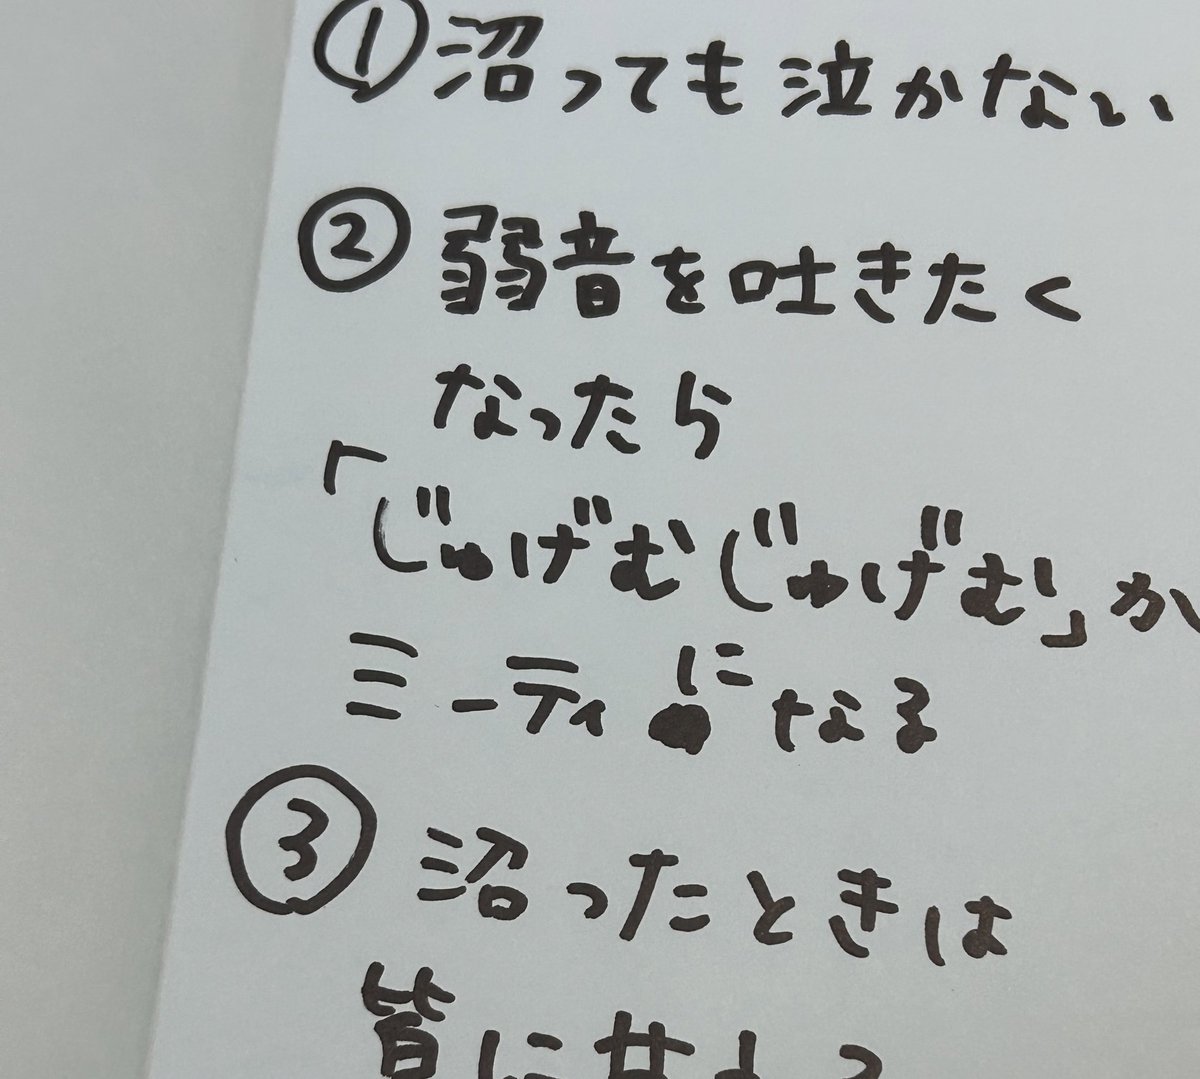 ① 沼っても泣かない
② 弱音を吐きたく
なったら
「じゅげむじゅげむ」か
ミーティになる
③ 沼ったときは
皆に